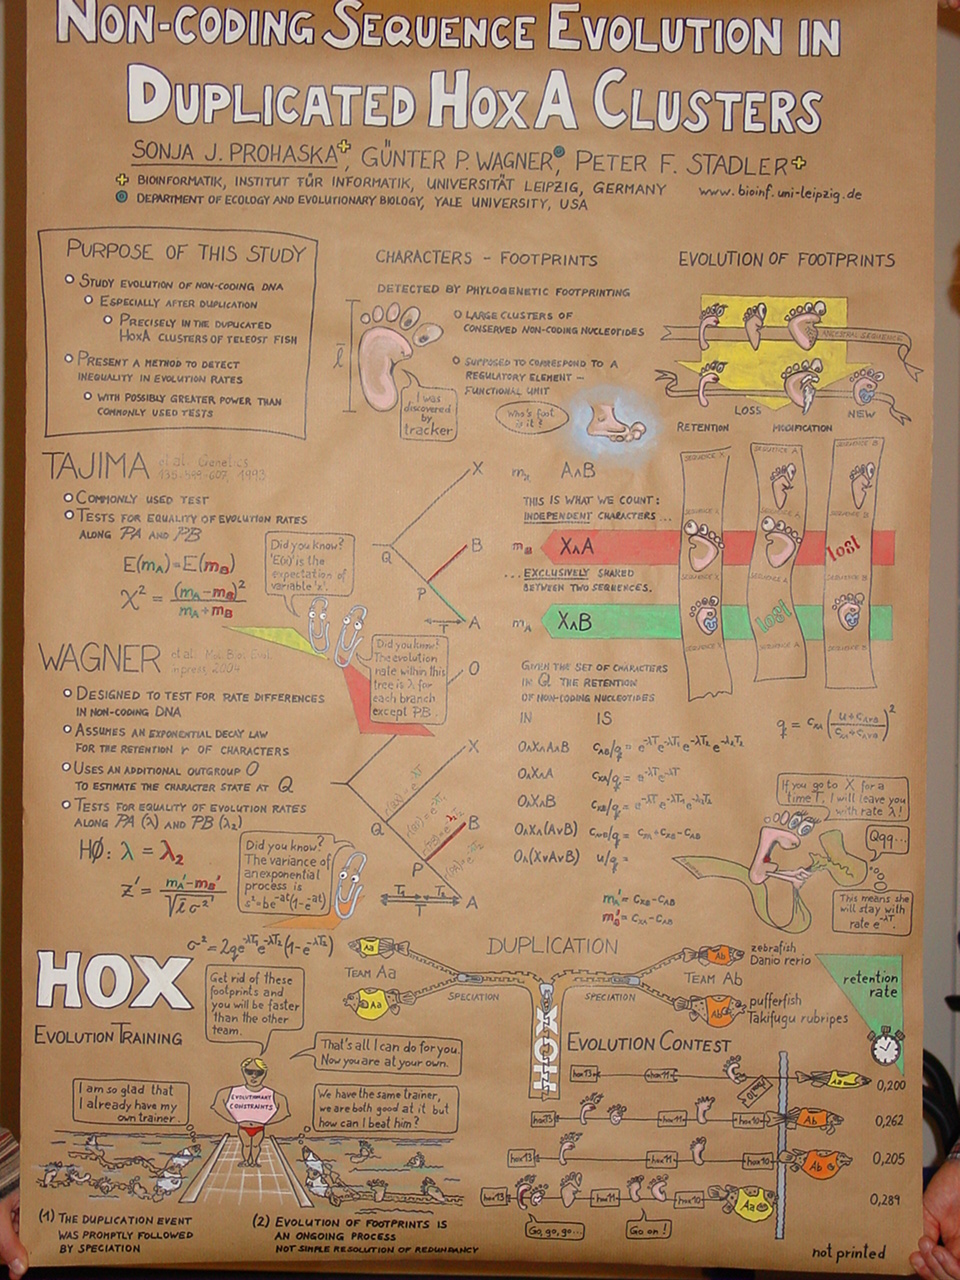 NON-CODING SEQUENCE EVOLUTION IN
DUPLICATED HOXA CLUSTERS
SONJA J. PROHASKA, GÜNTER P. WAGNER, PETER F. STADLER
BIOINFORMATIK, INSTITUT FÜR INFORMATIK, UNIVERSITÄT LEIPZIG, GERMANY
www.bioinf.uni-leipzig.de
DEPARTMENT OF ECOLOGY AND EVOLUTIONARY BIOLOGY, YALE UNIVERSITY, USA
PURPOSE OF THIS STUDY
STUDY EVOLUTION OF NON-CODING DNA
ESPECIALLY AFTER DUPLICATION
PRECISELY IN THE DUPLICATED
HOXA CLUSTERS OF TELEOST FISH
PRESENT A METHOD TO DETECT
INEQUALITY IN EVOLUTION RATES
WITH POSSIBLY GREATER POWER THAN
COMMONLY USED TESTS
CHARACTERS - FOOTPRINTS
DETECTED BY PHYLOGENETIC FOOTPRINTING
LARGE CLUSTERS OF
CONSERVED NON-CODING NUCLEOTIDES
SUPPOSED TO CORRESPOND TO A
REGULATORY ELEMENT –
FUNCTIONAL UNIT
I was
discovered
by
tracker
Who's foot
is it?
EVOLUTION OF FOOTPRINTS
ANCESTRAL SEQUENCE
LOSS
NEW
RETENTION
MODIFICATION
TAJIMA et al. Genetics
135:599-607, 1993
COMMONLY USED TEST
TESTS FOR EQUALITY OF EVOLUTION RATES
ALONG PA AND PB
E(mA)=E(mB)
χ² = (mA-mB)² / mA+mB
Did you know?
'E(x)' is the
expectation of
variable 'x'.
X
Q
B
P
T
A
mx A∧B
THIS IS WHAT WE COUNT:
INDEPENDENT CHARACTERS ...
mB X∧A
... EXCLUSIVELY SHARED
BETWEEN TWO SEQUENCES.
mA X∧B
SEQUENCE X
SEQUENCE A
SEQUENCE B
lost
lost
WAGNER et al. Mol. Biol. Evol.
in press, 2004
DESIGNED TO TEST FOR RATE DIFFERENCES
IN NON-CODING DNA
ASSUMES AN EXPONENTIAL DECAY LAW
FOR THE RETENTION r OF CHARACTERS
USES AN ADDITIONAL OUTGROUP O
TO ESTIMATE THE CHARACTER STATE AT Q
TESTS FOR EQUALITY OF EVOLUTION RATES
ALONG PA (λ) AND PB (λ₂)
HØ: λ = λ₂
z' = mA'-mB' / √l̄σ²
σ² = 2qe^-λT₁ e^-λT₂(1-e^-λT₂)
Did you know?
The evolution
rate within this
tree is λ for
each branch
except PB.
Did you know?
The variance of
an exponential
process is
s²=be^-at(1-e^-at)
O
X
Q
B
P
T₁
T₂
T
A
GIVEN THE SET OF CHARACTERS
IN Q THE RETENTION
OF NON-CODING NUCLEOTIDES
IN IS
O∧X∧A∧B cAB/q = e^-λT e^-λT₁ e^-λT₂ e^-λ₂T₂
O∧X∧A cXA/q = e^-λT e^-λT
O∧X∧B cXB/q = e^-λT e^-λT₁ e^-λ₂T₂
O∧X∧(A∨B) cA∨B/q = cXA+cXB-cAB
O∧(X∨A∨B) u/q =
mA' = cXB-cAB
mB' = cXA-cAB
q = cXA (u+cA∨B / cXA+cA∨B)²
If you go to X for a
time T, I will leave you
with rate λ!
Qqq...
This means she
will stay with
rate e^-λT.
HOX
EVOLUTION TRAINING
Get rid of these
footprints and
you will be faster
than the other
team.
That's all I can do for you.
Now you are at your own.
I am so glad that
I already have my
own trainer.
EVOLUTIONARY
CONSTRAINTS
We have the same trainer,
we are both good at it but
how can I beat him?
DUPLICATION
Aa
TEAM Aa
Aa
SPECIATION
SPECIATION
TEAM Ab
Ab
Ab
zebrafish
Danio rerio
pufferfish
Takifugu rubripes
HOX
retention
rate
EVOLUTION CONTEST
hox13 hox11 hox10 Aa 0,200
hox13 hox11 hox10 Ab 0,262
hox13 hox11 hox10 Ab 0,205
hox13 hox11 hox10 Aa 0,289
Go, go, go...
Go on!
(1) THE DUPLICATION EVENT
WAS PROMPTLY FOLLOWED
BY SPECIATION
(2) EVOLUTION OF FOOTPRINTS IS
AN ONGOING PROCESS
NOT SIMPLE RESOLUTION OF REDUNDANCY
not printed